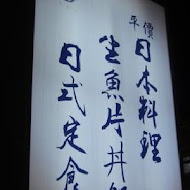 平價
日本料理
生魚片丼飯
日式定食